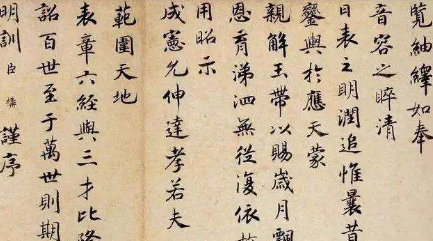 覧紬繹如奉
音容之睟清
日表之明潤追惟曩昔
鑾輿於應天蒙
親解玉帶以賜歲月飄
恩育涕泗無從復依
用昭示
成憲允伸達孝若夫
範圍天地
表章六經與三才比隆
詔百世至于萬世則期
明訓臣 謹序